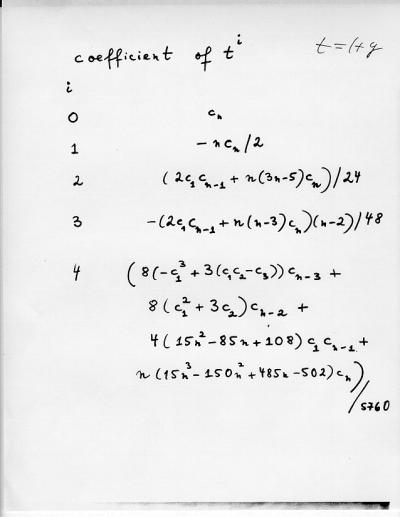 coefficient of t^i t=1+y
i
0 cₙ
1 -ncₙ/2
2 (2c₁cₙ₋₁ + n(3n-5)cₙ)/24
3 -(2c₁cₙ₋₁ + n(n-3)cₙ)(n-2)/48
4 (8(-c₁³ + 3(c₁c₂-c₃))cₙ₋₃ +
8(c₁² + 3c₂)cₙ₋₂ +
4(15n²-85n+108)c₁cₙ₋₁ +
n(15n³-150n²+485n-502)cₙ)
/5760